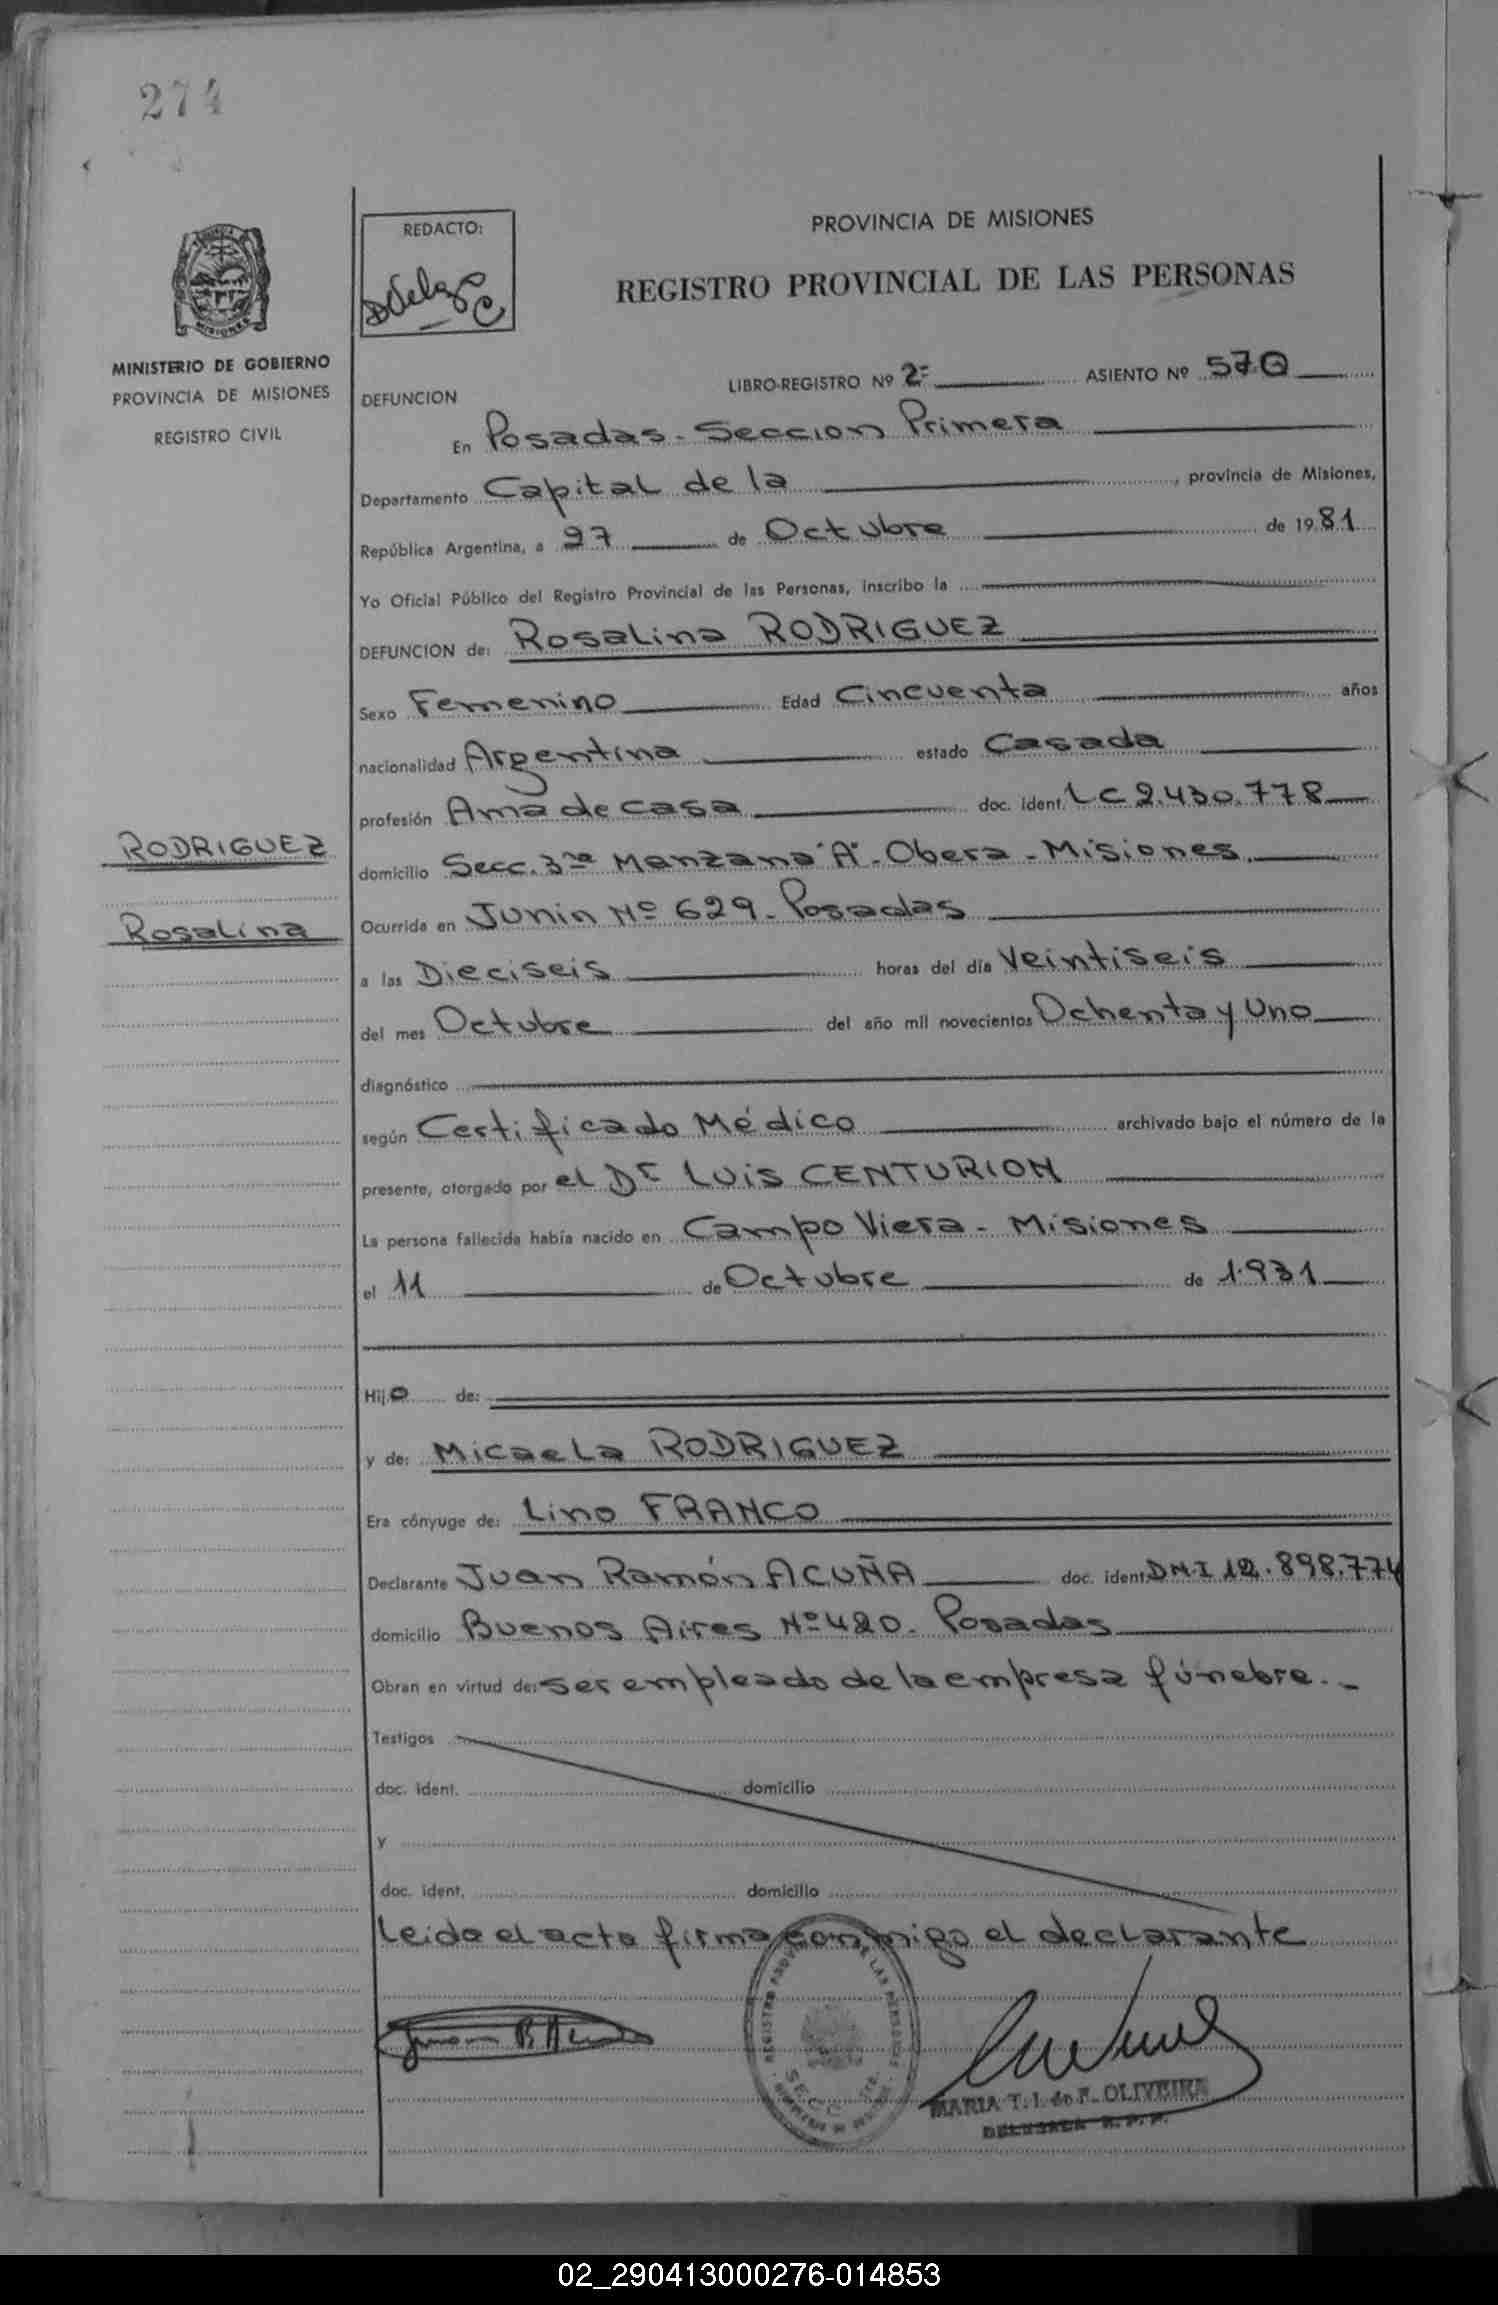 274
REDACTO:
PROVINCIA DE MISIONES
REGISTRO PROVINCIAL DE LAS PERSONAS
MISIONES
MINISTERIO DE GOBIERNO
PROVINCIA DE MISIONES
REGISTRO CIVIL
DEFUNCION
LIBRO-REGISTRO Nº 2º ASIENTO Nº 570
En Posadas - Seccion Primera
Departamento Capital de la, provincia de Misiones,
República Argentina, a 27 de Octubre de 1981
Yo Oficial Público del Registro Provincial de las Personas, inscribo la
DEFUNCION de: Rosalina RODRIGUEZ
Sexo Femenino Edad Cincuenta años
nacionalidad Argentina estado Casada
profesión Ama de casa doc. ident. LC 2.430.778
RODRIGUEZ
domicilio Secc. 3ra Manzana "A" - Obera - Misiones
Rosalina
Ocurrida en Junin Nº 629 - Posadas
a las Dieciseis horas del día Veintiseis
del mes Octubre del año mil novecientos Ochenta y Uno
diagnóstico
según Certificado Médico archivado bajo el número de la
presente, otorgado por el Dr LUIS CENTURION
La persona fallecida había nacido en Campo Viera - Misiones
el 11 de Octubre de 1.931
Hijo de:
y de: Micaela RODRIGUEZ
Era cónyuge de: Lino FRANCO
Declarante Juan Ramón ACUÑA doc. ident. DNI 12.898.774
domicilio Buenos Aires Nº 420. Posadas
Obran en virtud de: ser empleado de la empresa fúnebre.-
Testigos
doc. ident. domicilio
y
doc. ident. domicilio
Leida el acta firma conmigo el declarante
REGISTRO PROVINCIAL DE LAS PERSONAS
SECC. 1ra
MARIA T. I. de F. OLIVEIRA
DELEGADA R. P. P.
02_290413000276-014853